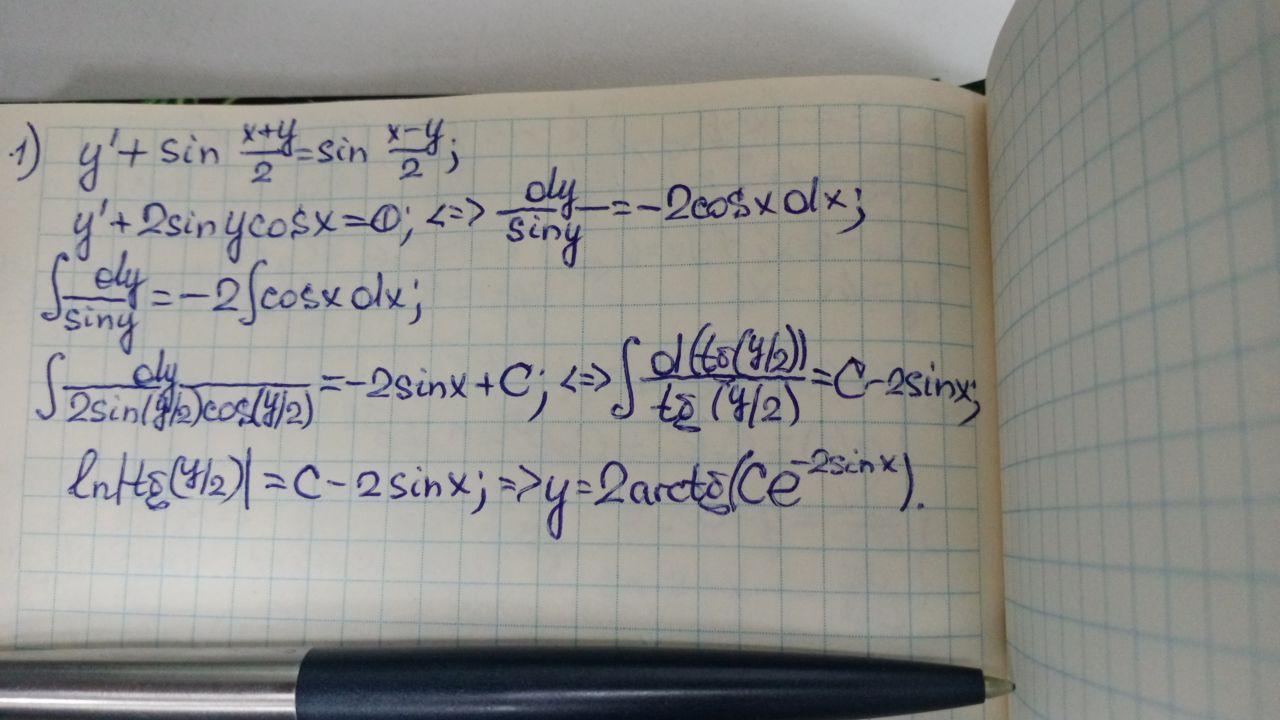 1) y' + sin (x+y)/2 = sin (x-y)/2;
y' + 2sinycosx = 0; <=> dy/siny = -2cosxdx;
∫dy/siny = -2∫cosxdx;
∫dy/(2sin(y/2)cos(y/2)) = -2sinx + C; <=> ∫d(tg(y/2))/tg(y/2) = C - 2sinx;
ln|tg(y/2)| = C - 2sinx; => y = 2arctg(Ce^(-2sinx)).